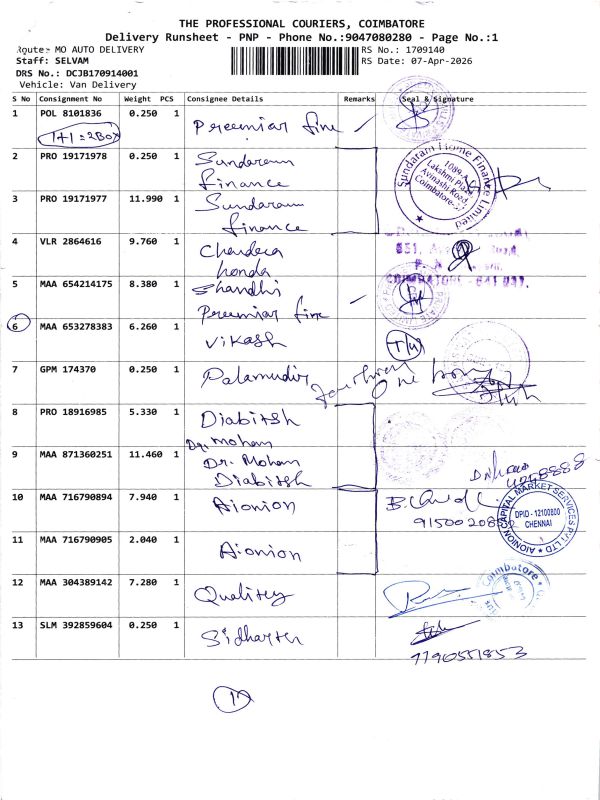 THE PROFESSIONAL COURIERS, COIMBATORE
Delivery Runsheet - PNP - Phone No.:9047080280 - Page No.:1
Route: MO AUTO DELIVERY
RS No.: 1709140
Staff: SELVAM
RS Date: 07-Apr-2026
DRS No.: DCJB170914001
Vehicle: Van Delivery
S No Consignment No Weight PCS Consignee Details Remarks Seal & Signature
1 POL 8101836 0.250 1 Preemiar fine
1+1=2Box
2 PRO 19171978 0.250 1 Sundaram
finance
Sundaram Home Finance Limited
1089-A
Lakshmi Plaza
Avinashi Road,
Coimbatore-
3 PRO 19171977 11.990 1 Sundaram
finance
4 VLR 2864616 9.760 1 Chandera
honda
COIMBATORE - 641 037.
5 MAA 654214175 8.380 1 Shandhi
Preemiar fine
6 MAA 653278383 6.260 1 Vikash
7 GPM 174370 0.250 1 Palamudir
one
8 PRO 18916985 5.330 1 Diabitsh
Dr. Mohan
9 MAA 871360251 11.460 1 Dr. Mohan
Diabitsh
10 MAA 716790894 7.940 1 Aionion
AIONION CAPITAL MARKET SERVICES PVT LTD
DPID - 12100800
CHENNAI
11 MAA 716790905 2.040 1 Aionion
12 MAA 304389142 7.280 1 Qualitey
Coimbatore
13 SLM 392859604 0.250 1 Sidharter
7790551853